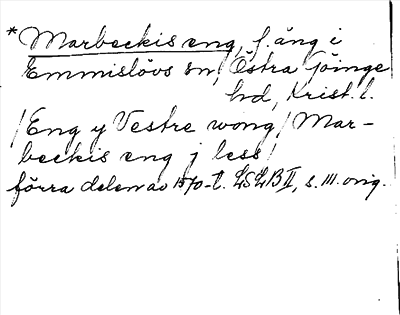 *Marbeckis eng, f. äng i
Emmislövs sn, Östra Göinge
hd, Krist. l.
/Eng y Vestre wong/ Mar-
beckis eng j less/
förra delen av 1570-t. LSLB II, s. 111. orig.